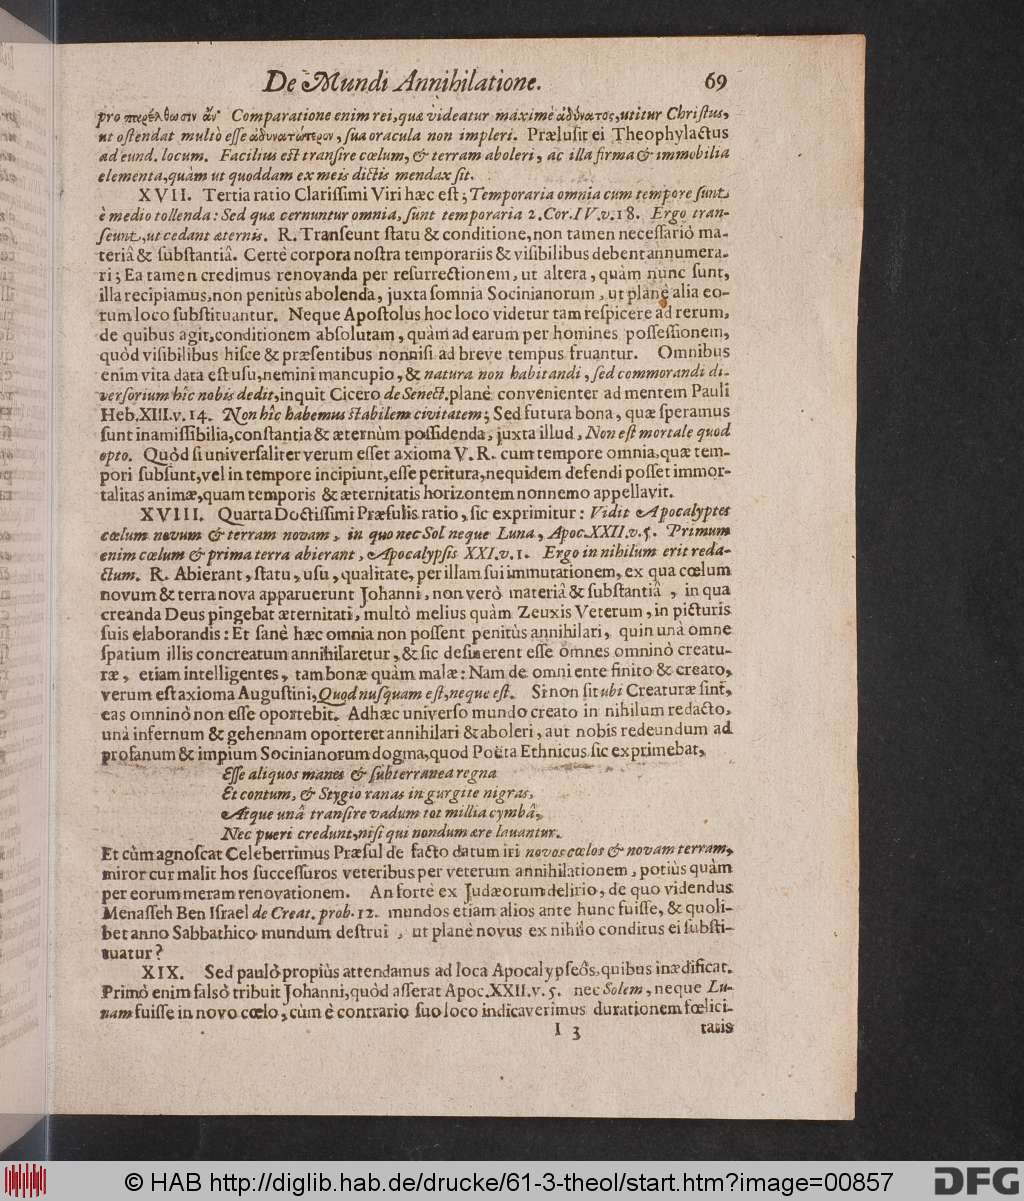 De Mundi Annihilatione. 69
pro παρέλθωσιν ἂν· Comparatione enim rei, quæ videatur maximè ἀδύνατος, utitur Christus,
ut ostendat multò esse ἀδυνατώτερον, sua oracula non impleri. Prælusit ei Theophylactus
ad eund. locum. Facilius est transire cœlum, & terram aboleri, ac illa firma & immobilia
elementa, quàm ut quoddam ex meis dictis mendax sit.
XVII. Tertia ratio Clarissimi Viri hæc est; Temporaria omnia cum tempore sunt
è medio tollenda: Sed quæ cernuntur omnia, sunt temporaria 2. Cor. IV. v. 18. Ergo tran-
seunt, ut cedant æternis. R. Transeunt statu & conditione, non tamen necessariò ma-
teriâ & substantiâ. Certè corpora nostra temporariis & visibilibus debent annumera-
ri; Ea tamen credimus renovanda per resurrectionem, ut altera, quàm nunc sunt,
illa recipiamus, non penitùs abolenda, juxta somnia Socinianorum, ut planè alia eo-
rum loco substituantur. Neque Apostolus hoc loco videtur tam respicere ad rerum,
de quibus agit, conditionem absolutam, quàm ad earum per homines possessionem,
quòd visibilibus hisce & præsentibus nonnisi ad breve tempus fruantur. Omnibus
enim vita data est usu, nemini mancupio, & natura non habitandi, sed commorandi di-
versorium hîc nobis dedit, inquit Cicero de Senect. planè convenienter ad mentem Pauli
Heb. XIII. v. 14. Non hîc habemus stabilem civitatem; Sed futura bona, quæ speramus
sunt inamissibilia, constantia & æternùm possidenda, juxta illud, Non est mortale quod
opto. Quòd si universaliter verum esset axioma V. R. cum tempore omnia, quæ tem-
pori subsunt, vel in tempore incipiunt, esse peritura, nequidem defendi posset immor-
talitas animæ, quam temporis & æternitatis horizontem nonnemo appellavit.
XVIII. Quarta Doctissimi Præsulis ratio, sic exprimitur: Vidit Apocalyptes
cœlum novum & terram novam, in quo nec Sol neque Luna, Apoc. XXII. v. 5. Primum
enim cœlum & prima terra abierant, Apocalypsis XXI. v. 1. Ergo in nihilum erit reda-
ctum. R. Abierant, statu, usu, qualitate, per illam sui immutationem, ex qua cœlum
novum & terra nova apparuerunt Johanni, non verò materiâ & substantiâ, in qua
creanda Deus pingebat æternitati, multò melius quàm Zeuxis Veterum, in picturis
suis elaborandis: Et sanè hæc omnia non possent penitùs annihilari, quin unà omne
spatium illis concreatum annihilaretur, & sic desinerent esse omnes omninò creatu-
ræ, etiam intelligentes, tam bonæ quàm malæ: Nam de omni ente finito & creato,
verum est axioma Augustini, Quod nusquam est, neque est. Si non sit ubi Creaturæ sint,
eas omninò non esse oportebit. Adhæc universo mundo creato in nihilum redacto,
unà infernum & gehennam oporteret annihilari & aboleri, aut nobis redeundum ad
profanum & impium Socinianorum dogma, quod Poëta Ethnicus sic exprimebat,
Esse aliquos manes & subterranea regna
Et contum, & Stygio ranas in gurgite nigras,
Atque unâ transire vadum tot millia cymbâ,
Nec pueri credunt, nisi qui nondum ære lavantur.
Et cùm agnoscat Celeberrimus Præsul de facto datum iri novos cœlos & novam terram,
miror cur malit hos successuros veteribus per veterum annihilationem, potiùs quàm
per eorum meram renovationem. An fortè ex Judæorum delirio, de quo videndus
Menasseh Ben Israel de Creat. prob. 12. mundos etiam alios ante hunc fuisse, & quoli-
bet anno Sabbathico mundum destrui, ut planè novus ex nihilo conditus ei substi-
tuatur?
XIX. Sed paulò propiùs attendamus ad loca Apocalypseῶς, quibus inædificat.
Primò enim falsò tribuit Johanni, quòd asserat Apoc. XXII. v. 5. nec Solem, neque Lu-
nam fuisse in novo cœlo, cùm è contrario suo loco indicaverimus durationem fœlici-
I 3 tatis
© HAB http://diglib.hab.de/drucke/61-3-theol/start.htm?image=00857
DFG